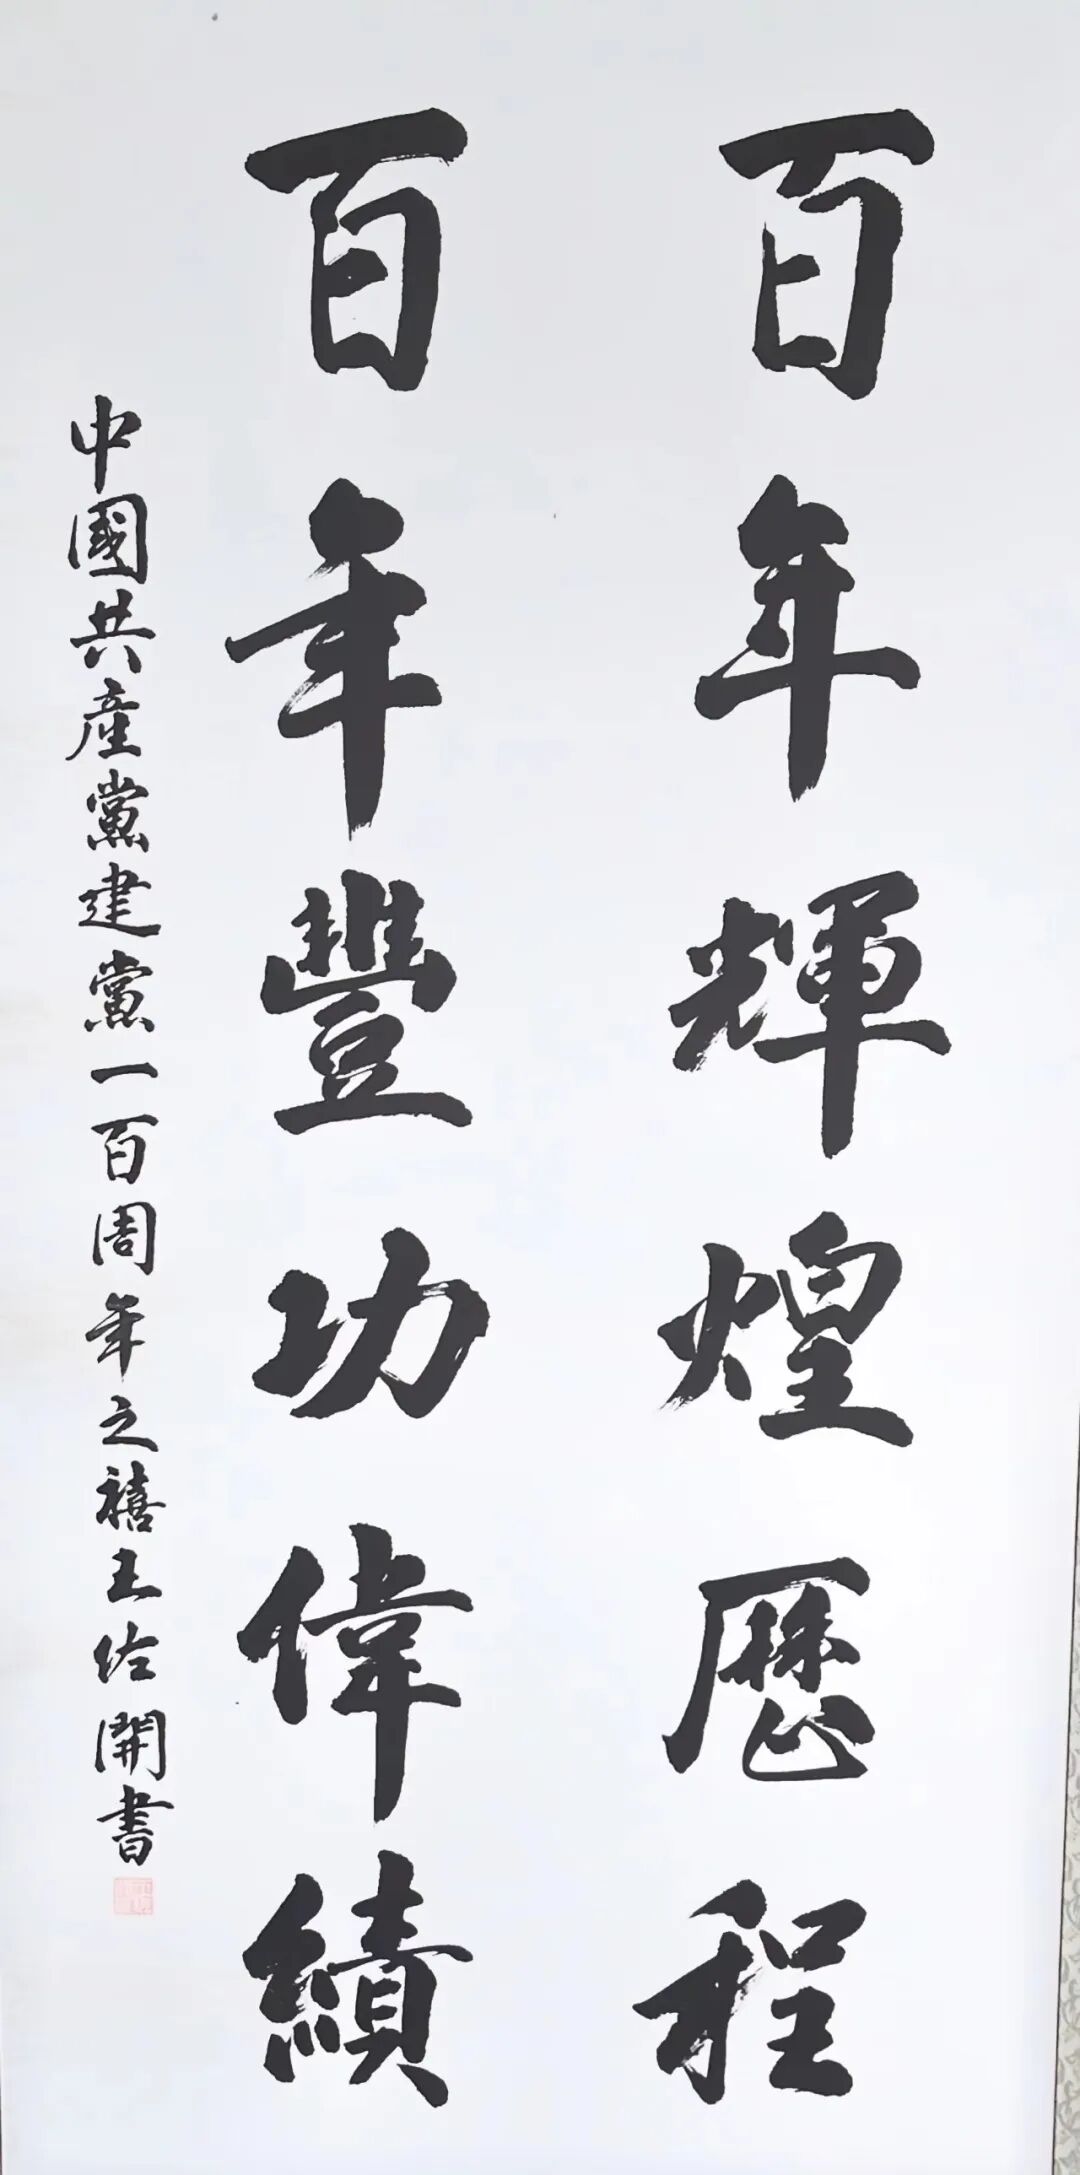 百年輝煌歷程
百年豐功偉績
中國共產黨建黨一百周年之禧王佐開書